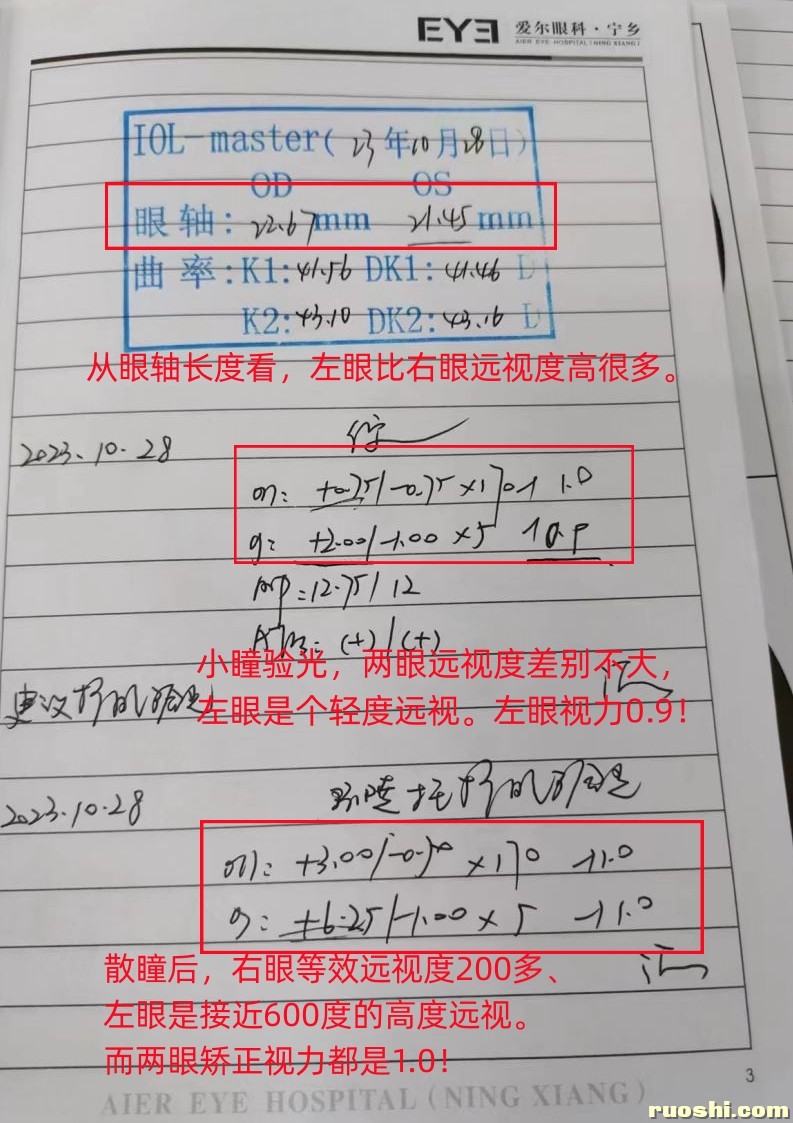 EYE 爱尔眼科·宁乡
AIER EYE HOSPITAL (NING XIANG)
IOL-master( 23 年10月28日)
OD OS
眼 轴: 22.67mm 21.45 mm
曲 率:K1:41.56 DK1: 41.46 D
K2:43.10 DK2: 43.16 D
从眼轴长度看，左眼比右眼远视度高很多。
2023.10.28
+0.25/-0.75 ×170→1.0
+2.00/-1.00 ×5 →0.9
=12.75/12
(+)/(+)
小瞳验光，两眼远视度差别不大，
建议
左眼是个轻度远视。左眼视力0.9！
2023.10.28
+3.00/-0.50 ×170 →1.0
+6.25/-1.00 × 5 →1.0
散瞳后，右眼等效远视度200多、
左眼是接近600度的高度远视。
而两眼矫正视力都是1.0！
3
AIER EYE HOSPITAL (NING XIANG)
ruoshi.com